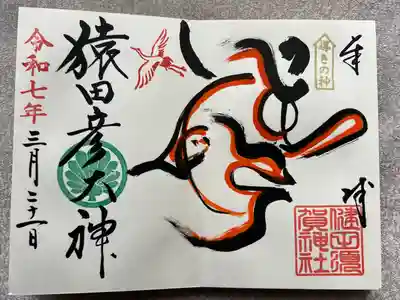 奉拝
導きの神
健田須
賀神社
猿田彦大神
令和七年
三月二十一日